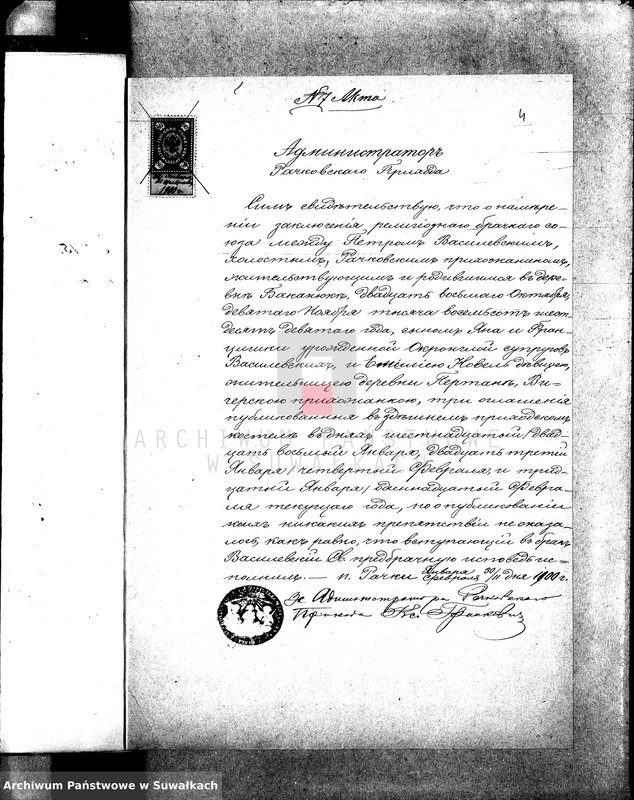 № 7 Акта
4
Администраторъ
Рачковскаго Прихода
1900 г.
Симъ свидѣтельствую, что о намѣре-
нiи заключенiя религiознаго брачнаго со-
юза между Петромъ Василевскимъ,
холостымъ, Рачковскимъ прихожаниномъ,
жительствующимъ и родившимся въ дере-
внѣ Баканюкъ, двадцать восьмаго Октября,
девятаго Ноября тысяча восемьсотъ шесть-
десятъ девятаго года, сыномъ Яна и Фран-
цишки урожденной супруговъ
Василевскихъ, и Новель дѣвицею,
жительницею деревни Пертанъ, Ви-
герскою прихожанкою, три оглашенiя
публикованныя въ здѣшнемъ приходскомъ
костелѣ въ дняхъ шестнадцатый / двад-
цать восьмый Января, двадцать третiй
Января / четвертый Февраля и трид-
цатый Января / одиннадцатый Февра-
ля текущаго года, по опубликованiи
коихъ никакихъ препятствiй не оказа-
лось, какъ равно, что вступающiй въ бракъ
Василевскiй Св. предбрачную исповѣдь ис-
полнилъ. — п. Рачки Января Февраля 30/11 дня 1900 г.
За Администратора Рачковскаго
Прихода Кс.
ARCHIWUM PAŃSTWOWE
W SUWAŁKACH
Archiwum Państwowe w Suwałkach